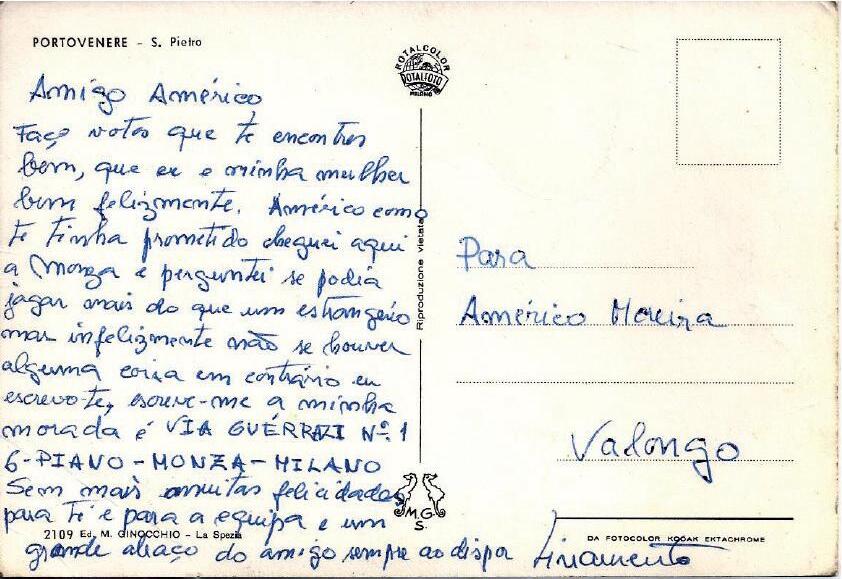 PORTOVENERE - S. Pietro
ROTALCOLOR
ROTALFOTO
MILANO
Amigo Américo
Faço votos que te encontres
bem, que eu e minha mulher
bem felizmente. Américo como
te tinha prometido cheguei aqui
a Monza e perguntei se podia
jagar mais do que um estrangeiro
mas infelizmente não se houver
alguma coisa em contrário eu
escrevo-te, escreve-me a minha
morada é VIA GUÉRRAZI Nº. 1
6-PIANO-MONZA-MILANO
Sem mais muitas felicidades
para ti e para a equipa e um
grande abraço do amigo sempre ao dispor
Riproduzione vietata
Para
Américo Moreira
Valongo
M.G.
S.
2109 Ed. M. GINOCCHIO - La Spezia
DA FOTOCOLOR KODAK EKTACHROME